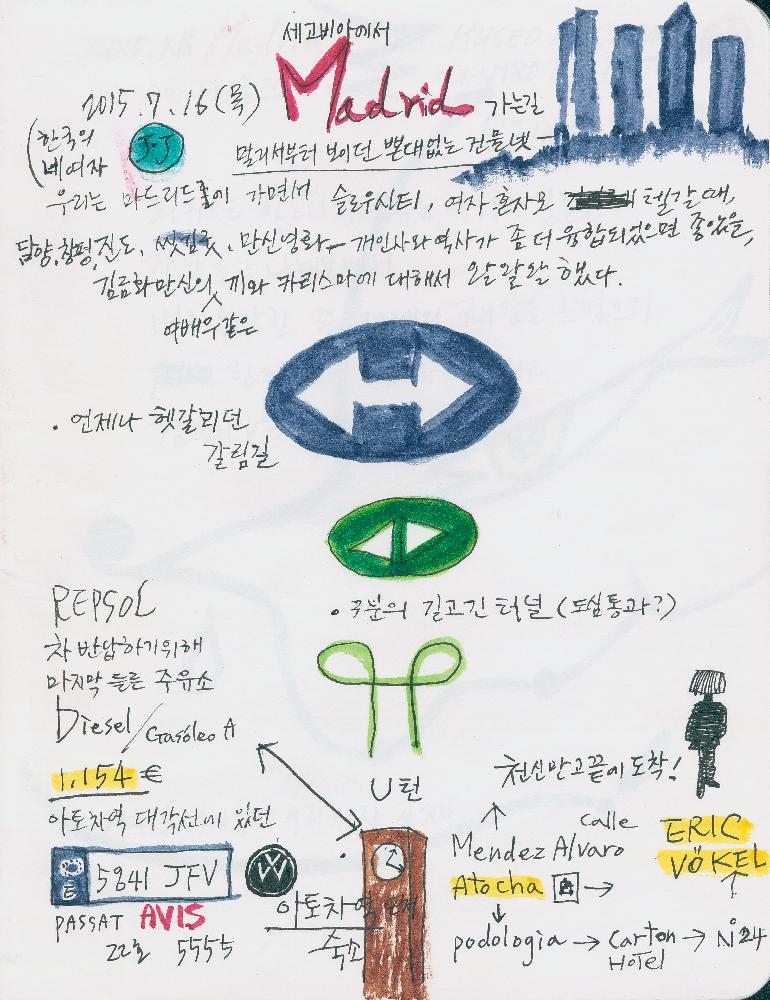 세고비아에서
Madrid 가는길
2015.7.16(목)
(한국의
네여자
J.J
멀리서부터 보이던 뽄대없는 건물넷
우리는 마드리드로 가면서 슬로우시티, 여자 혼자모 텔갈때,
담양,창평,진도, 씻김굿, 만신영화 개인사와 역사가 좀 더 융합되었으면 좋았을,
김금화만신의 끼와 카리스마에 대해서 왈왈왈 했다.
여배우같은
· 언제나 헷갈리던
갈림길
REPSOL
차 반납하기위해
마지막 들른 주유소
Diesel/Gasoleo A
1.154 €
아토차역 대각선에 있던
· 구분의 길고긴 터널 (도심통과?)
U턴
천신만고끝에 도착!
E 5841 JFV
VW
PASSAT AVIS
22호 5555
아토차역
숙소
calle
Mendez Alvaro
Atocha
podologia → Carton → N°24
HOTEL
ERIC
VÖKEL